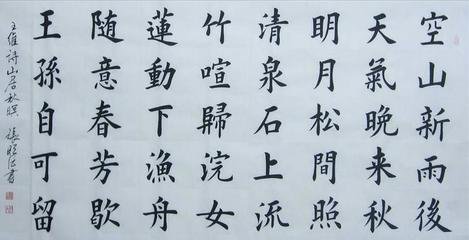 空山新雨後
天氣晚来秋
明月松間照
清泉石上流
竹喧歸浣女
蓮動下漁舟
随意春芳歇
王孫自可留
王維詩山居秋暝